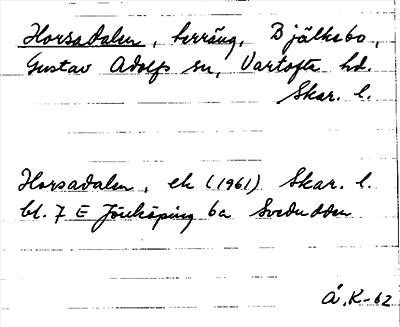 Horsadalen, terräng, Bjälkabo,
Gustav Adolfs sn, Vartofta hd.
Skar. l.
Horsadalen, ek (1961) Skar. l.
bl. 7 E Jönköping 6a Svedudden
Å.K-62